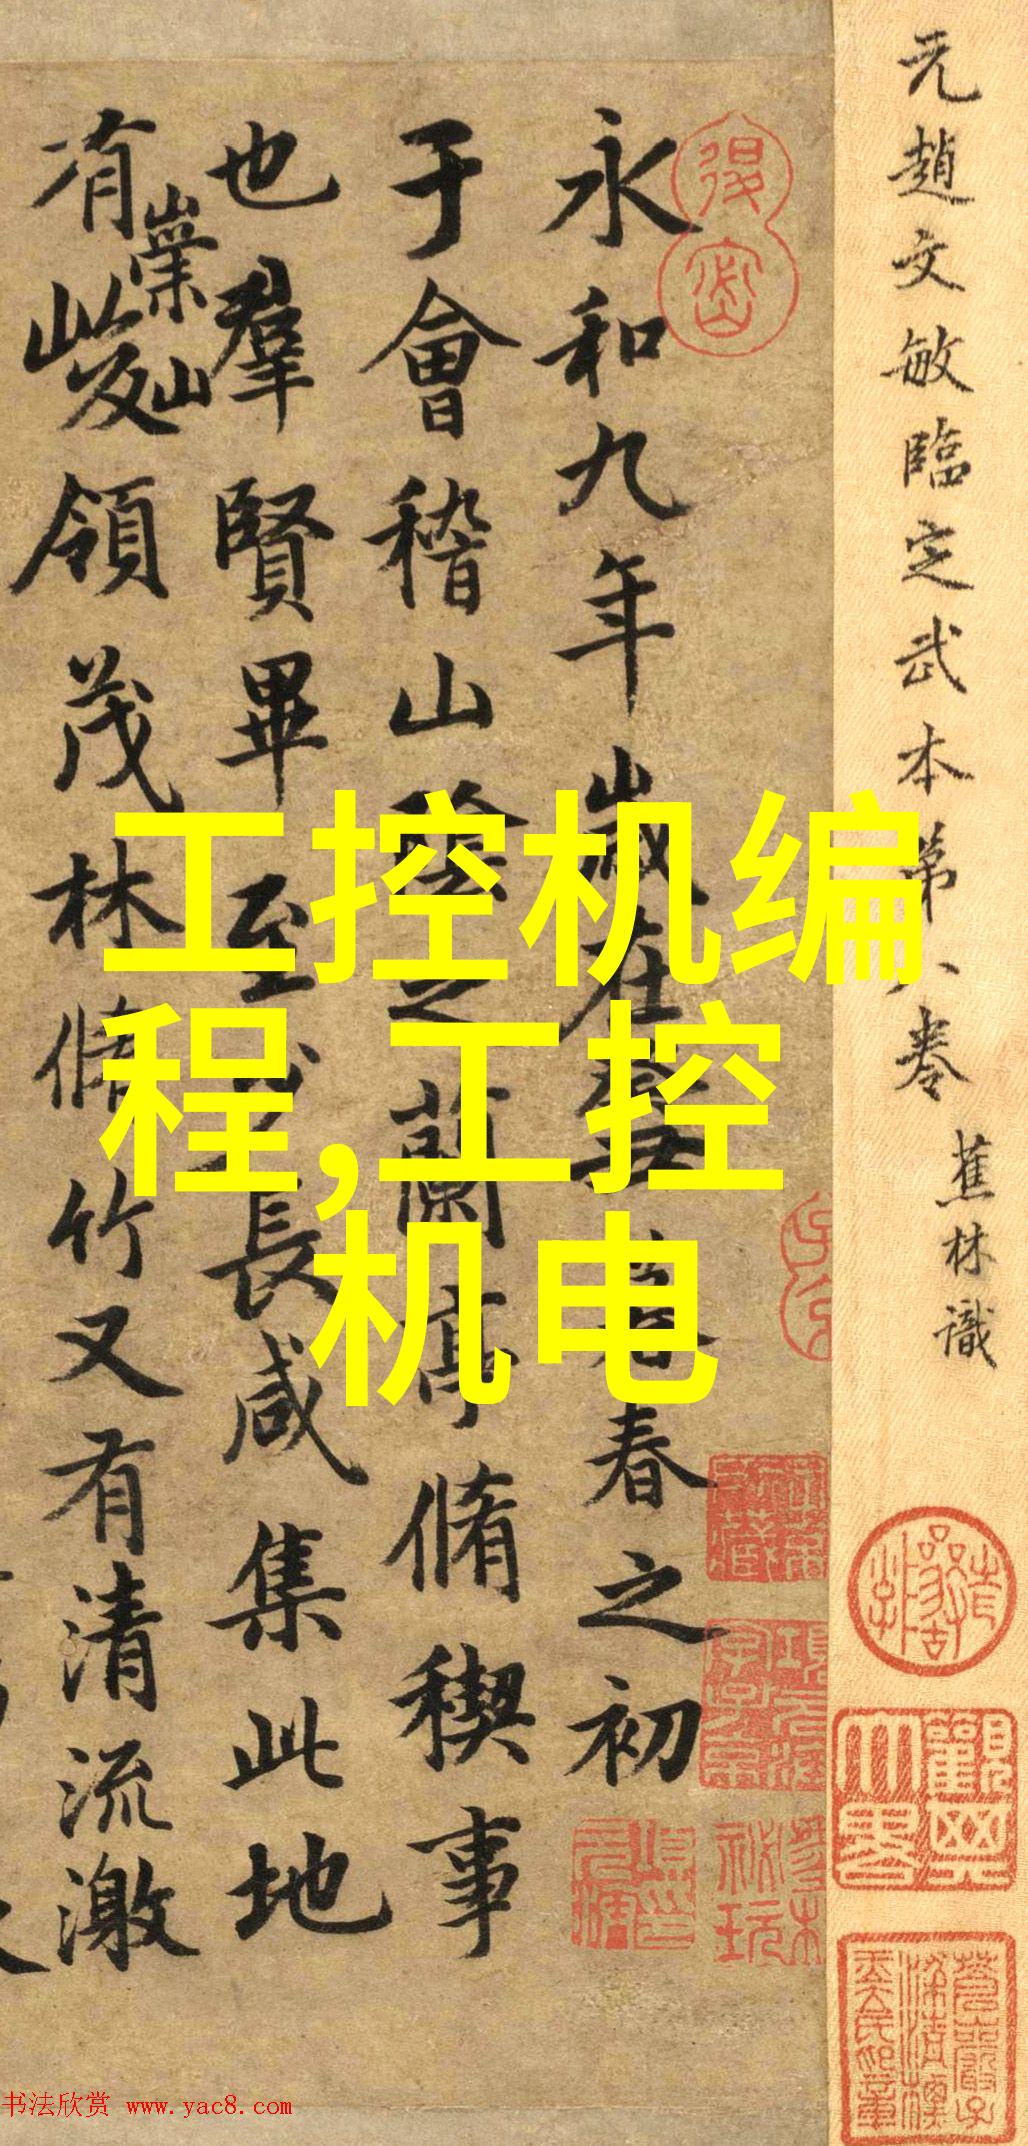 元趙文敏臨定武本第八卷
蕉林識
永和九年歲在癸丑暮春之初
于會稽山陰之蘭亭脩稧事
也羣賢畢至少長咸集此地
有峻領茂林脩竹又有清流激
崇山
工控机编
程,工控
机电
书法欣赏 www.yac8.com